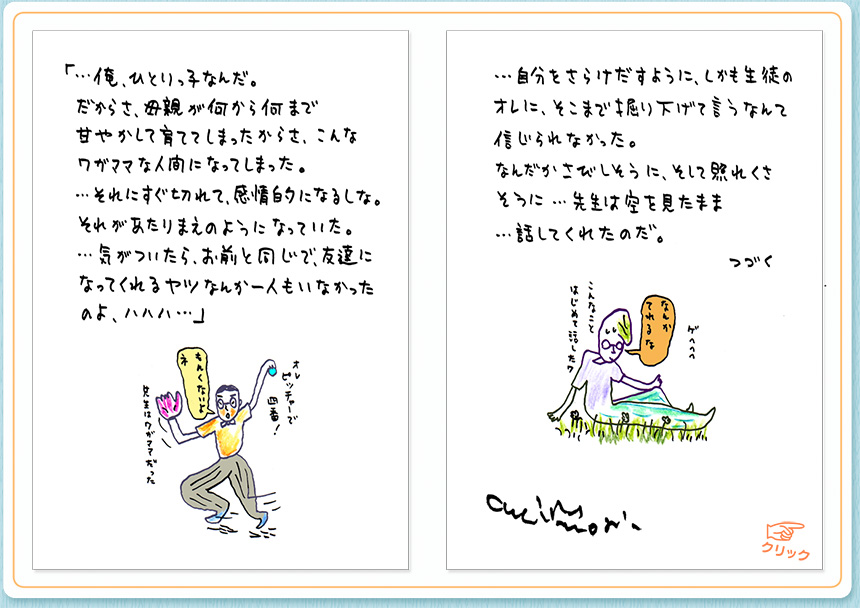 「…俺、ひとりっ子なんだ。
だからさ、母親が何から何まで
甘やかして育ててしまったからさ、こんな
ワガママな人間になってしまった。
…それにすぐ切れて、感情的になるしな。
それがあたりまえのようになっていた。
…気がついたら、お前と同じで、友達に
なってくれるヤツなんか一人もいなかった
のよ、ハハハ…」
オレ
ピッチャーで
四番!
もんくないよ
ネ
先生はワガママだった
…自分をさらけだすように、しかも生徒の
オレに、そこまで掘り下げて言うなんて
信じられなかった。
なんだかさびしそうに、そして照れくさ
そうに…先生は空を見たまま
…話してくれたのだ。
つづく
ゲへへへ
なんか
てれるな
こんなこと
はじめて話したワ
クリック